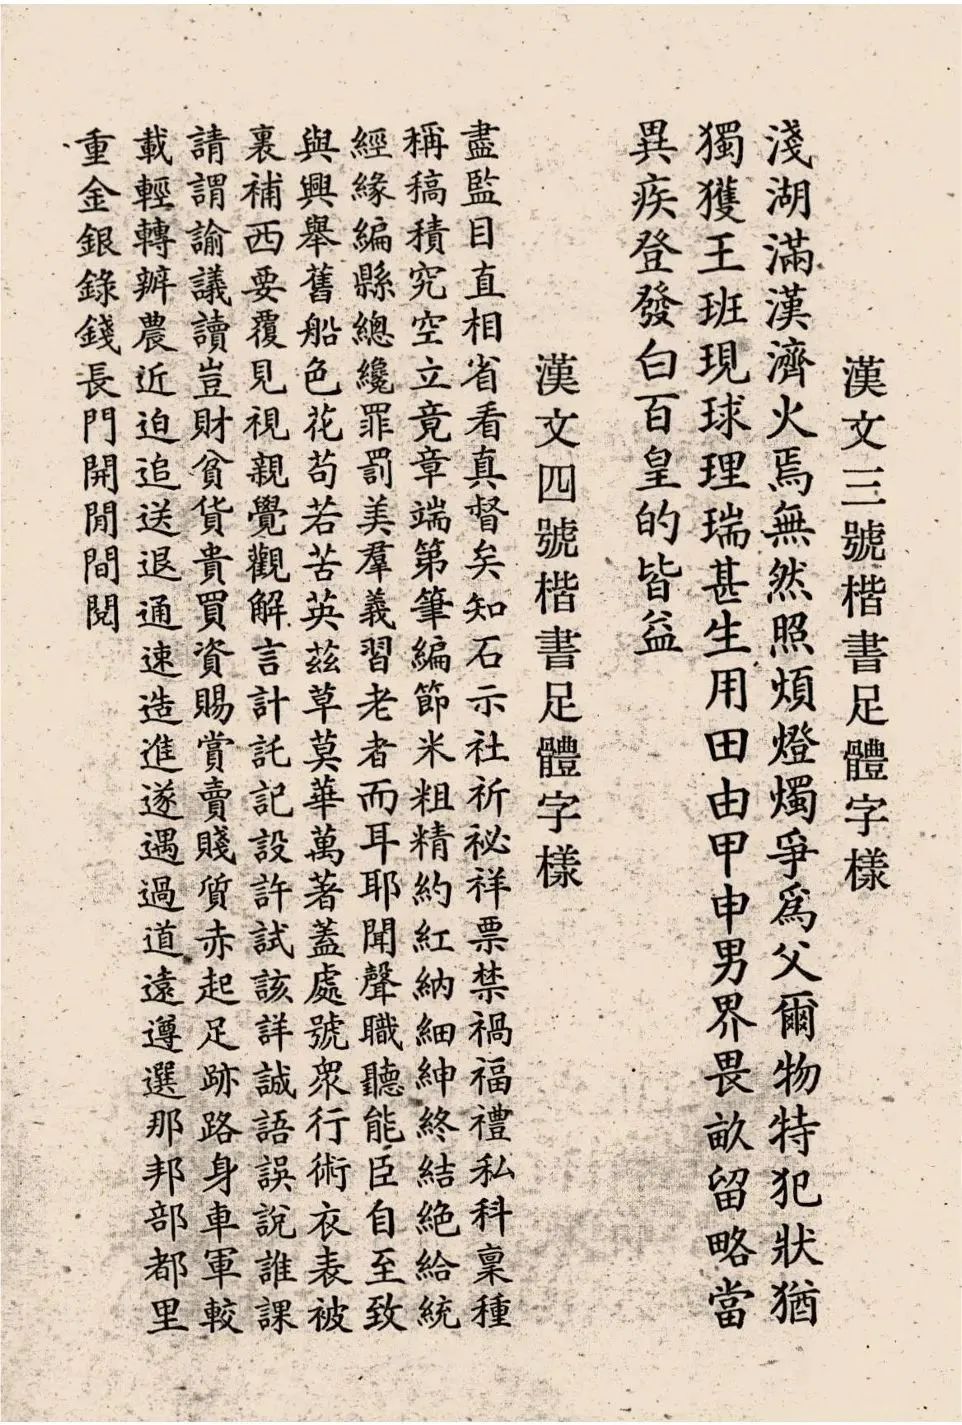 漢文三號楷書足體字樣
淺湖滿漢濟火焉無然照煩燈燭爭爲父爾物特犯狀猶
獨獲王班現球理瑞甚生用田由甲申男界畏畝留略當
異疾登發白百皇的皆益
漢文四號楷書足體字樣
盡監目直相省看真督矣知石示社祈祕祥票禁禍福禮私科稟種
稱稿積究空立竟章端第筆編節米粗精約紅納細紳終結絕給統
經緣編縣總纔罪罰美羣義習老者而耳耶聞聲職聽能臣自至致
與興舉舊船色花苟若苦英茲草莫華萬著蓋處號衆行術衣表被
裏補西要覆見視親覺觀解言計託記設許試該詳誠語誤說誰課
請謂諭議讀豈財貧貨貴買資賜賞賣賤質赤起足跡路身車軍較
載輕轉辦農近迫追送退通速造進遂遇過道遠遵選那邦部都里
重金銀錄錢長門開閒間閱